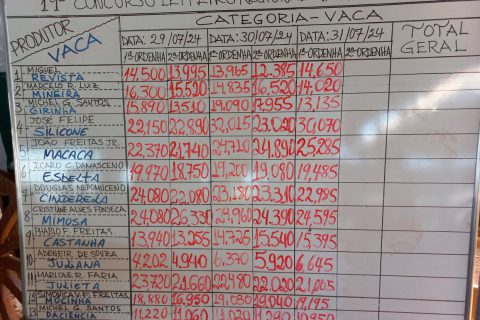 19º CONCURSO LEITEIRO
CATEGORIA - VACA
PRODUTOR VACA
DATA: 29/07/24 DATA: 30/07/24 DATA: 31/07/24 TOTAL GERAL
1ª ORDENHA 2ª ORDENHA 1ª ORDENHA 2ª ORDENHA 1ª ORDENHA 2ª ORDENHA
1 MIGUEL
REVISTA 14,500 13,995 13,965 12,385 14,650
2 MARCELO R. LUIZ
MINEIRA 16,300 15,520 14,835 16,520 14,020
3 MICHEL G. SANTOS
GIRINHA 15,890 13,510 19,090 17,955 13,135
4 JOSÉ FELIPE
SILICONE 22,150 22,890 32,015 23,020 30,070
5 JOÃO FREITAS JR.
MACACA 22,370 21,740 24,710 24,890 25,285
6 ICARO C. DAMASCENO
ESBELTA 19,970 18,750 19,200 19,080 19,485
7 DOUGLAS NEPOMUCENO
CINDERELA 24,080 22,080 23,180 23,310 22,985
8 CRISTINE ALVES FONSECA
MIMOSA 24,080 26,330 24,960 24,390 24,595
9 PHABLO F. FREITAS
CASTANHA 13,940 13,255 14,725 15,540 15,395
10 ADEMIR DE SOUZA
JULIANA 4,202 4,940 6,370 5,920 6,645
11 MARLONE R. FARIA
JULIETA 23,720 21,660 22,480 22,020 21,005
12 F. FREITAS
MOCINHA 18,880 16,950 19,080 19,040 19,195
13 MICHEL G. SANTOS
PACIÊNCIA 11,220 11,060 11,290 10,950